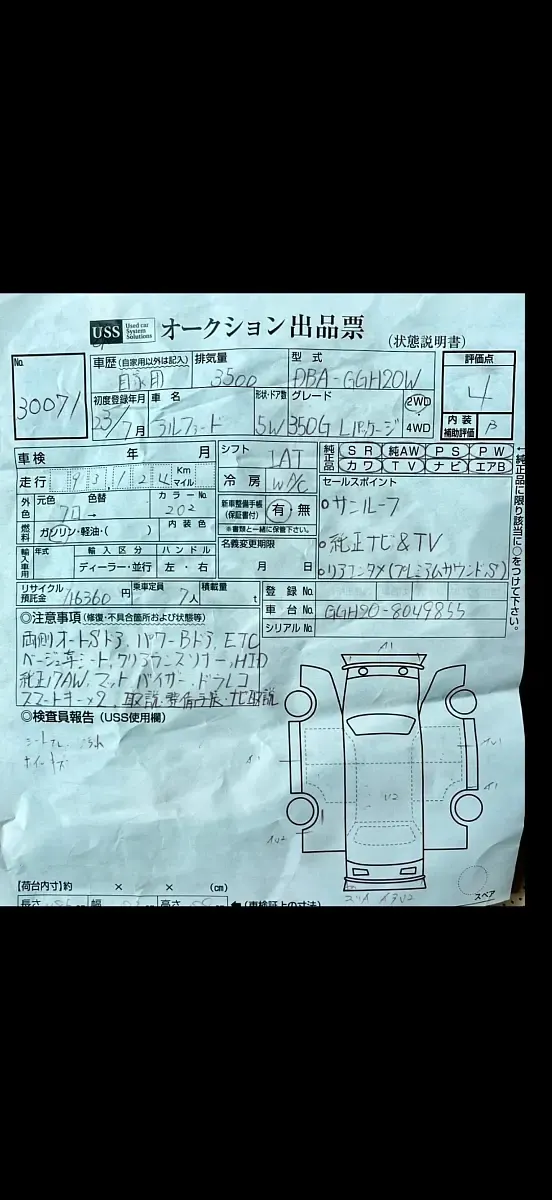 USS Used car System Solutions オークション出品票 (状態説明書)
No. 30071
車歴 (自家用以外は記入) 自家用
排気量 3500
型式 DBA-GGH20W
評価点 4
初度登録年月 23/7月
車名 アルファード
形状・ドア数 5W
グレード 350G Lパッケージ
2WD 4WD
内装補助評価 B
車検 年 月
走行 93,124 Km マイル
シフト IAT
純正品 SR 純AW PS PW
カワ TV ナビ エアB
←純正品に限り該当に○をつけて下さい。
冷房 W/C
セールスポイント
外色 元色 クロ 色替 →
カラーNo. 202
新車整備手帳(保証書付) 有・無
※書類と一緒に保管下さい。
サンルーフ
燃料 ガソリン・軽油・( )
内装色
名義変更期限 月 日
純正ナビ&TV
輸入車用 年式 輸入区分 ディーラー・並行 ハンドル 左・右
リアエンタメ(プレミアムサウンドS)
リサイクル預託金 16360円
乗車定員 7人
積載量 t
登録No.
車台No. GGH20-8049855
シリアルNo.
◎注意事項 (修復・不具合箇所および状態等)
両側オートSドア, パワーBドア, ETC
ベージュ革シート, クリアランスソナー, HID
純正17AW, マット, バイザー, ドラレコ
スマートキー×2, 取説・整備手帳・ナビ取説
◎検査員報告 (USS使用欄)
A1
U2
スペア
【荷台内寸】約 × × (cm)
長さ 幅 高さ ←(車検証上の寸法)